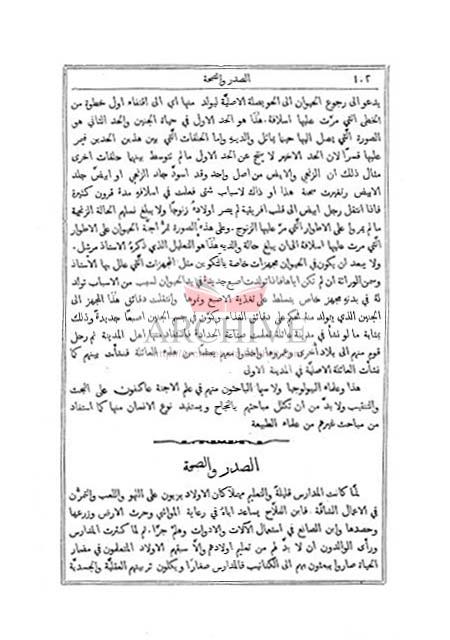 ٤٠٢ الصدر والصحة
يدعو الى رجوع الحيوان الى الحويصلة الاصلية ليولد منها اي الى اقتفاء اول خطوة من
الخطى التي مرّت عليها اسلافهُ. هذا هو الحد الاول في حياة الجنين والحد الثاني هو
الصورة التي يصل اليها حينما يماثل والديهِ واما الحلقات التي بين هذين الحدين فيمر
عليها قسرًا لان الحد الاخير لا ينتج عن الحد الاول ما لم تتوسط بينهما حلقات اخرى
مثال ذلك ان الزنجي والابيض من اصل واحد وقد اسودَّ جلد الزنجي او ابيضّ جلد
الابيض وتغيرت سحنة هذا او ذاك لاسباب شتى فعلت في اسلافهِ مدة قرون كثيرة
فاذا انتقل رجل ابيض الى قلب افريقية لم يصر اولادهُ زنوجًا ولا يبلغ نسلهم الحالة الزنجية
ما لم يمروا على الاطوار التي مرّ عليها الزنوج. وعلى هذه الصورة تمرُّ اجنة الحيوان على الاطوار
التي مرت عليها اسلافهُ الى ان يبلغ حالة والديهِ هذا هو التعليل الذي ذكرهُ الاستاذ مرشل.
ولا يبعد ان يكون في الحيوان مجهزات خاصة بالتكوين مثل المجهزات التي علل بها الاستاذ
وسمن الوراثة ان لم تكن اياها فاذا تولدت اصبع جديدة في يد الحيوان لسبب من الاسباب تولد
لهُ في بدنهِ مجهز خاص يتسلط على تغذية الاصبع ونموها وانتقلت دقائق هذا المجهز الى
الجنين الذي يتولد منهُ على دقائق الغذاء ويكون في جسم الجنين اصبعًا جديدة وذلك
بمثابة ما لو نشأ في مدينة عائلة تعلمت صناعة الحدادة اهل المدينة ثم رحل
قوم منهم الى بلاد اخرى وعمروها واخذوا معهم بعضًا من هذه العائلة فنشأت بينهم كما
نشأت العائلة الاصلية في المدينة الاولى
هذا وعلماء البيولوجيا ولا سيما الباحثون منهم في علم الاجنة عاكفون على البحث
والتنقيب ولا بدَّ من ان تكلل مباحثهم بالنجاح ويستفيد نوع الانسان منها كما استفاد
من مباحث غيرهم من علماء الطبيعة
الصدر والصحة
لمّا كانت المدارس قليلة والتعليم مهملا كان الاولاد يربون على اللهو واللعب والتمرُّن
في الاعمال الشاقّة. فابن الفلاّح يساعد اباهُ في رعاية المواشي وحرث الارض وزرعها
وحصدها وابن الصانع في استعمال الآلات والادوات وهلمَّ جرًّا. ثم لما كثرت المدارس
ورأى الوالدون ان لا بدّ لهم من تعليم اولادهم والاّ سبقهم الاولاد المتعلمون في مضمار
الحياة صاروا يبعثون بهم الى الكتاتيب فالمدارس صغارًا ويكلون تربيتهم العقليّة والجسديّة
ARCHIVE